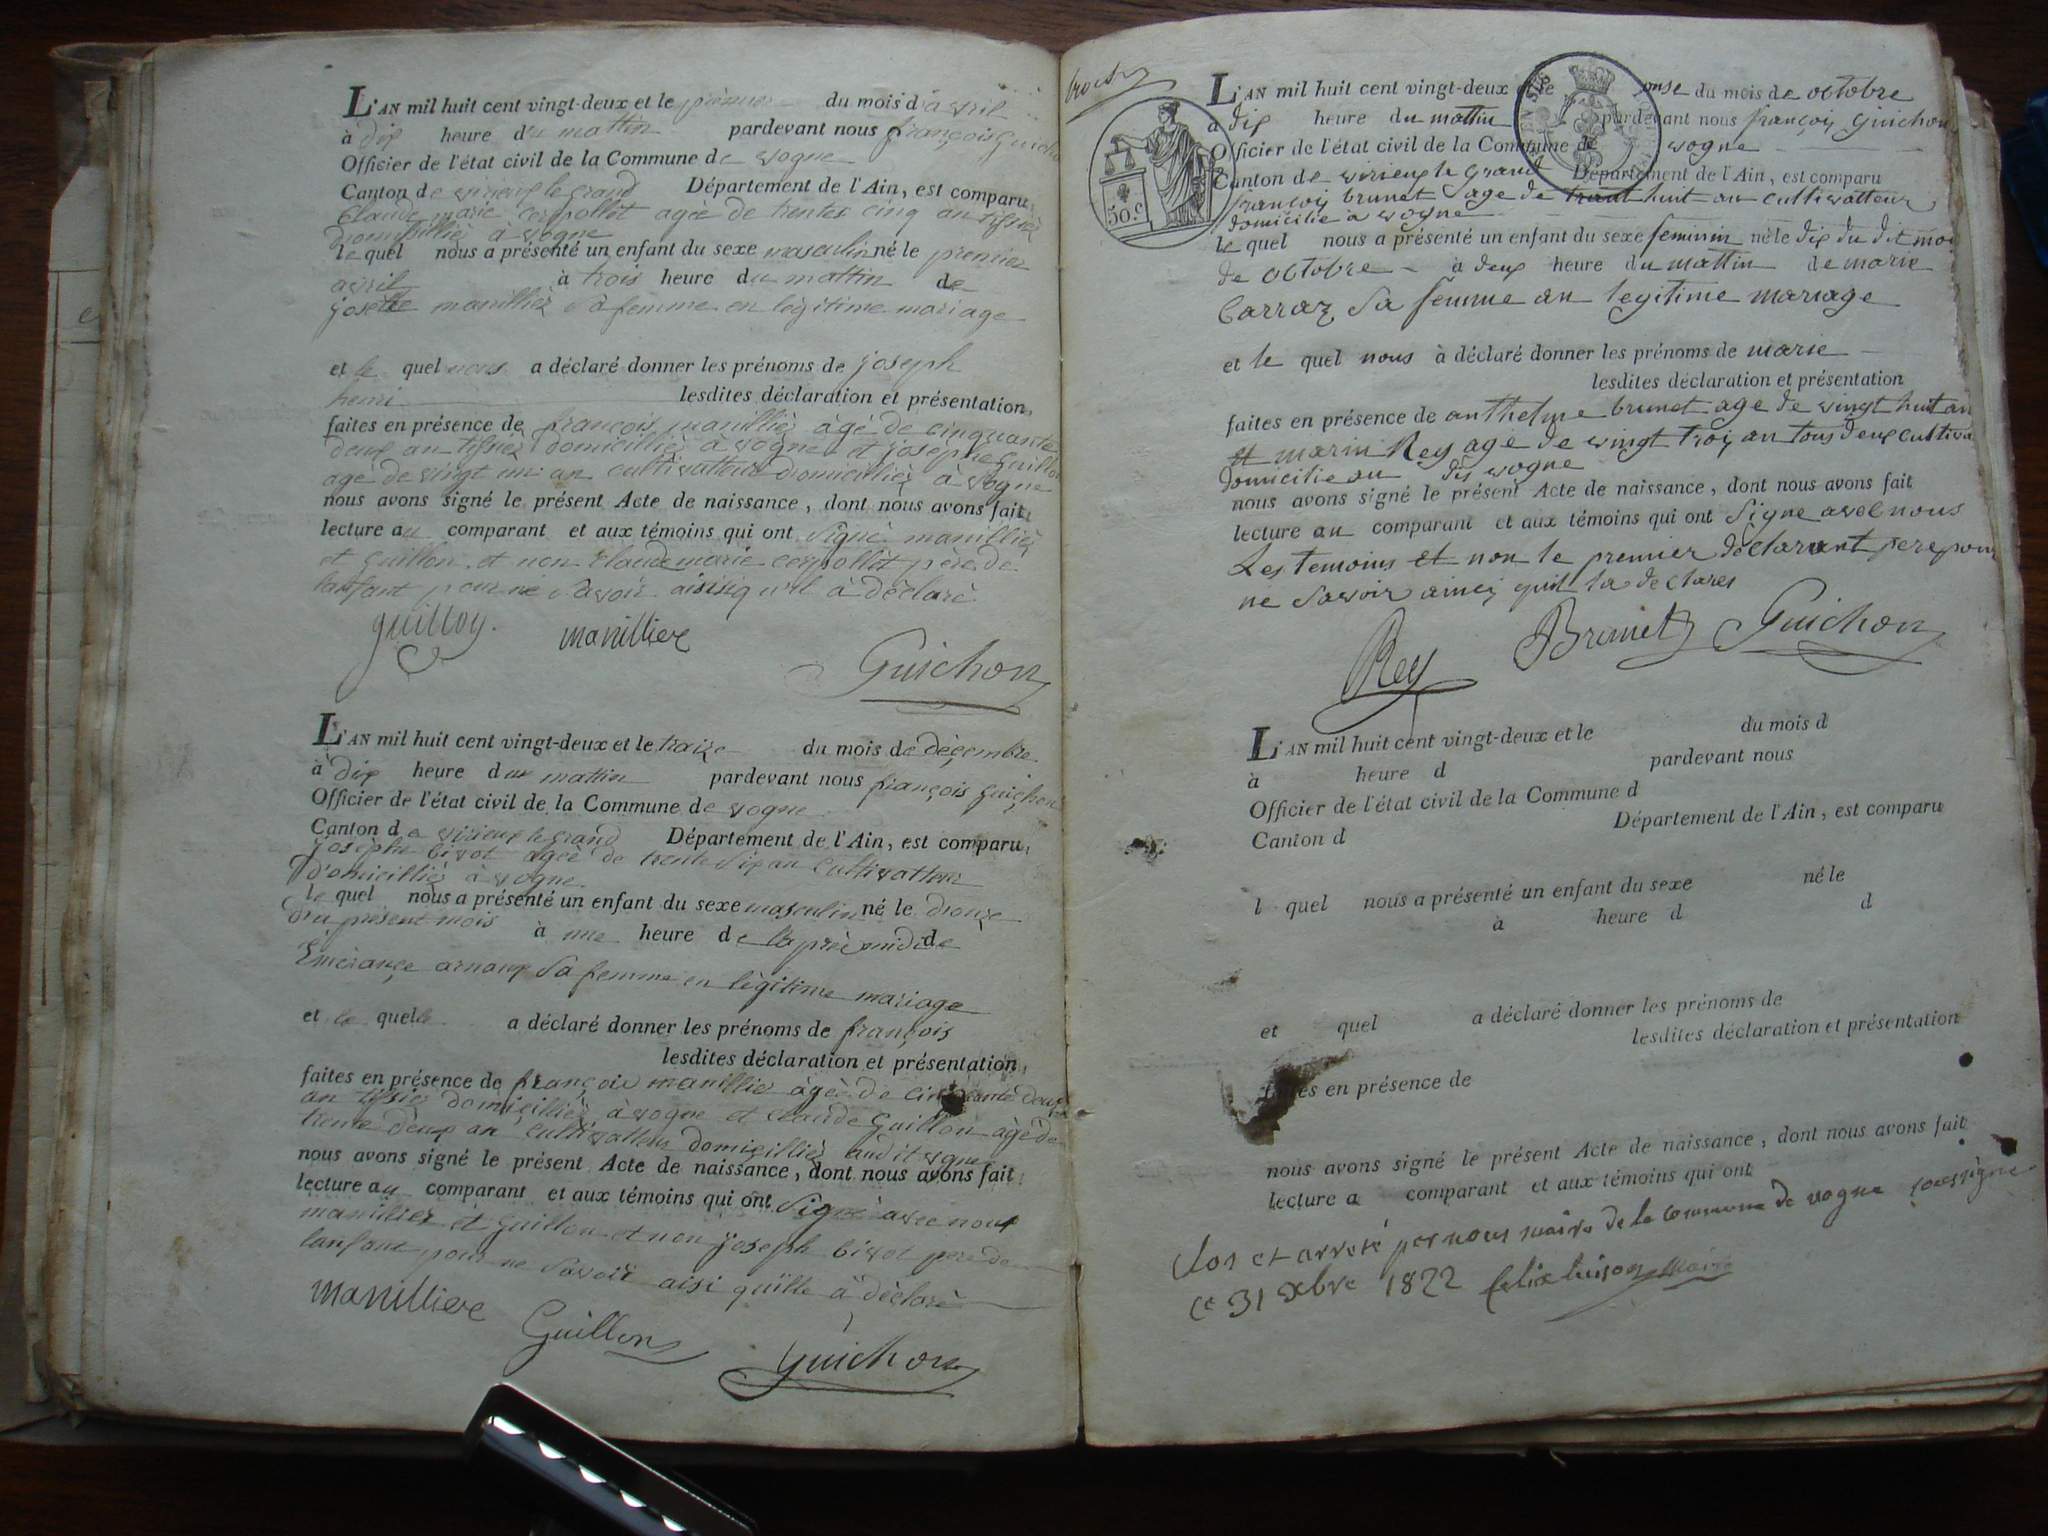 L'AN mil huit cent vingt-deux et le premier du mois d'avril
à dix heure du mattin pardevant nous françois Guichon
Officier de l'état civil de la Commune de vogne
Canton de virieux le grand Département de l'Ain, est comparu
Claude marie cerpollet agèe de trentes cinq an tissiè
domicilliès à vogne
le quel nous a présenté un enfant du sexe masculin né le premier
avril à trois heure du mattin de
josette manillièr sà femme en légitime mariage
et le quel nous a déclaré donner les prénoms de joseph
henri lesdites déclaration et présentation
faites en présence de françois manilliès àgé de cinquante
deux an tissiès domicilliès à vogne et josephe Guillon
agé de vingt un an cultivatteur domicilliès à vogne
nous avons signé le présent Acte de naissance, dont nous avons fait
lecture au comparant et aux témoins qui ont signè manilliès
et guillon et non Claude marie cerpollet père de
lanfant pour ne savoir aisisiqu'il à dèclarè
guilloy. manilliere
Guichon
L'AN mil huit cent vingt-deux et le traize du mois de dèçembre
à dix heure du mattin pardevant nous françois Guichon
Officier de l'état civil de la Commune de vogne
Canton de virieux le grand Département de l'Ain, est comparu
josephe bivot agèe de trente six an cultivatteur
D'omicilliès à vogne
le quel nous a présenté un enfant du sexe masculin né le douze
du présent mois à une heure de laprès midi de
Emèrançe arnaux sa femme en lègitime mariage
et le quelle a déclaré donner les prénoms de françois
lesdites déclaration et présentation
faites en présence de françois manillies àgèe de cinquante deux
an tissiès domiçilliès à vogne et claude Guillon àgè de
trente deux an cultivatteur domiçilliès audit vogne
nous avons signé le présent Acte de naissance, dont nous avons fait
lecture au comparant et aux témoins qui ont signe avec nous
manillies et guillon et non joseph bivot pere de
lanfant pour ne savoir aisi quille à dèclarè
Manilliere Guillon Guichon
50.c
L'AN mil huit cent vingt-deux et le onse du mois de octobre
à dix heure du mattin pardevant nous françois Guichon
Officier de l'état civil de la Commune de vogne
Canton de virieux le grand Département de l'Ain, est comparu
françois brunet age de trant huit an cultivatteur
domicilie a vogne
le quel nous a présenté un enfant du sexe feminin né le dix du dit moi
de octobre à deux heure du mattin de marie
Carraz sa femme an legitime mariage
et le quel nous à déclaré donner les prénoms de marie
lesdites déclaration et présentation
faites en présence de anthelme brunet age de vingt huit an
et marin Rey age de vingt troi an tous deux cultiva
domicilie au dis vogne
nous avons signé le présent Acte de naissance, dont nous avons fait
lecture au comparant et aux témoins qui ont signe avec nous
Les temoins et non le premier declarant pere pour
ne savoir ainci quil la declares
Rey Brunet Guichon
L'AN mil huit cent vingt-deux et le du mois d
à heure d pardevant nous
Officier de l'état civil de la Commune d
Canton d Département de l'Ain, est comparu
l quel nous a présenté un enfant du sexe né le
à heure d d
et quel a déclaré donner les prénoms de
lesdites déclaration et présentation
faites en présence de
nous avons signé le présent Acte de naissance, dont nous avons fait
lecture a comparant et aux témoins qui ont
Clos et arreté par nous maire de la commune de vogne soussigné
ce 31 xbre 1822 maire